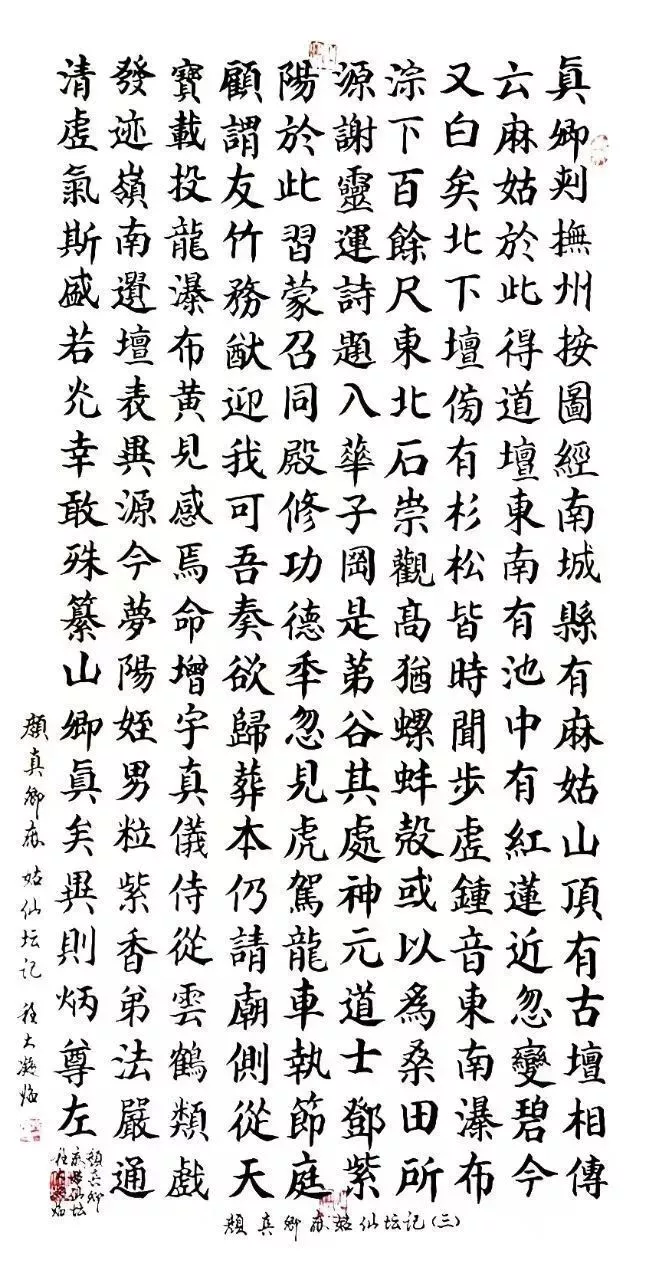 眞卿刾撫州按圖經南城縣有麻姑山頂有古壇相傳
云麻姑於此得道壇東南有池中有紅蓮近忽變碧今
又白矣北下壇傍有杉松皆時聞步虛鍾音東南瀑布
淙下百餘尺東北石崇觀高猶螺蚌殼或以爲桑田所
源謝靈運詩題入華子岡是第谷其處神元道士鄧紫
陽於此習蒙召同殿修功德秊忽見虎駕龍車執節庭
顧謂友竹務猷迎我可吾奏欲歸葬本仍請廟側從天
寶載投龍瀑布黃見感焉命增宇真儀侍從雲鶴類戲
發迹嶺南選壇表異源今夢陽姪男粒紫香弟法嚴通
清虛氣斯盛若炗幸敢殊纂山卿眞矣異則炳尊左
顏真卿麻姑仙坛记
顏真卿
麻姑仙坛
顏真卿麻姑仙坛记(三)